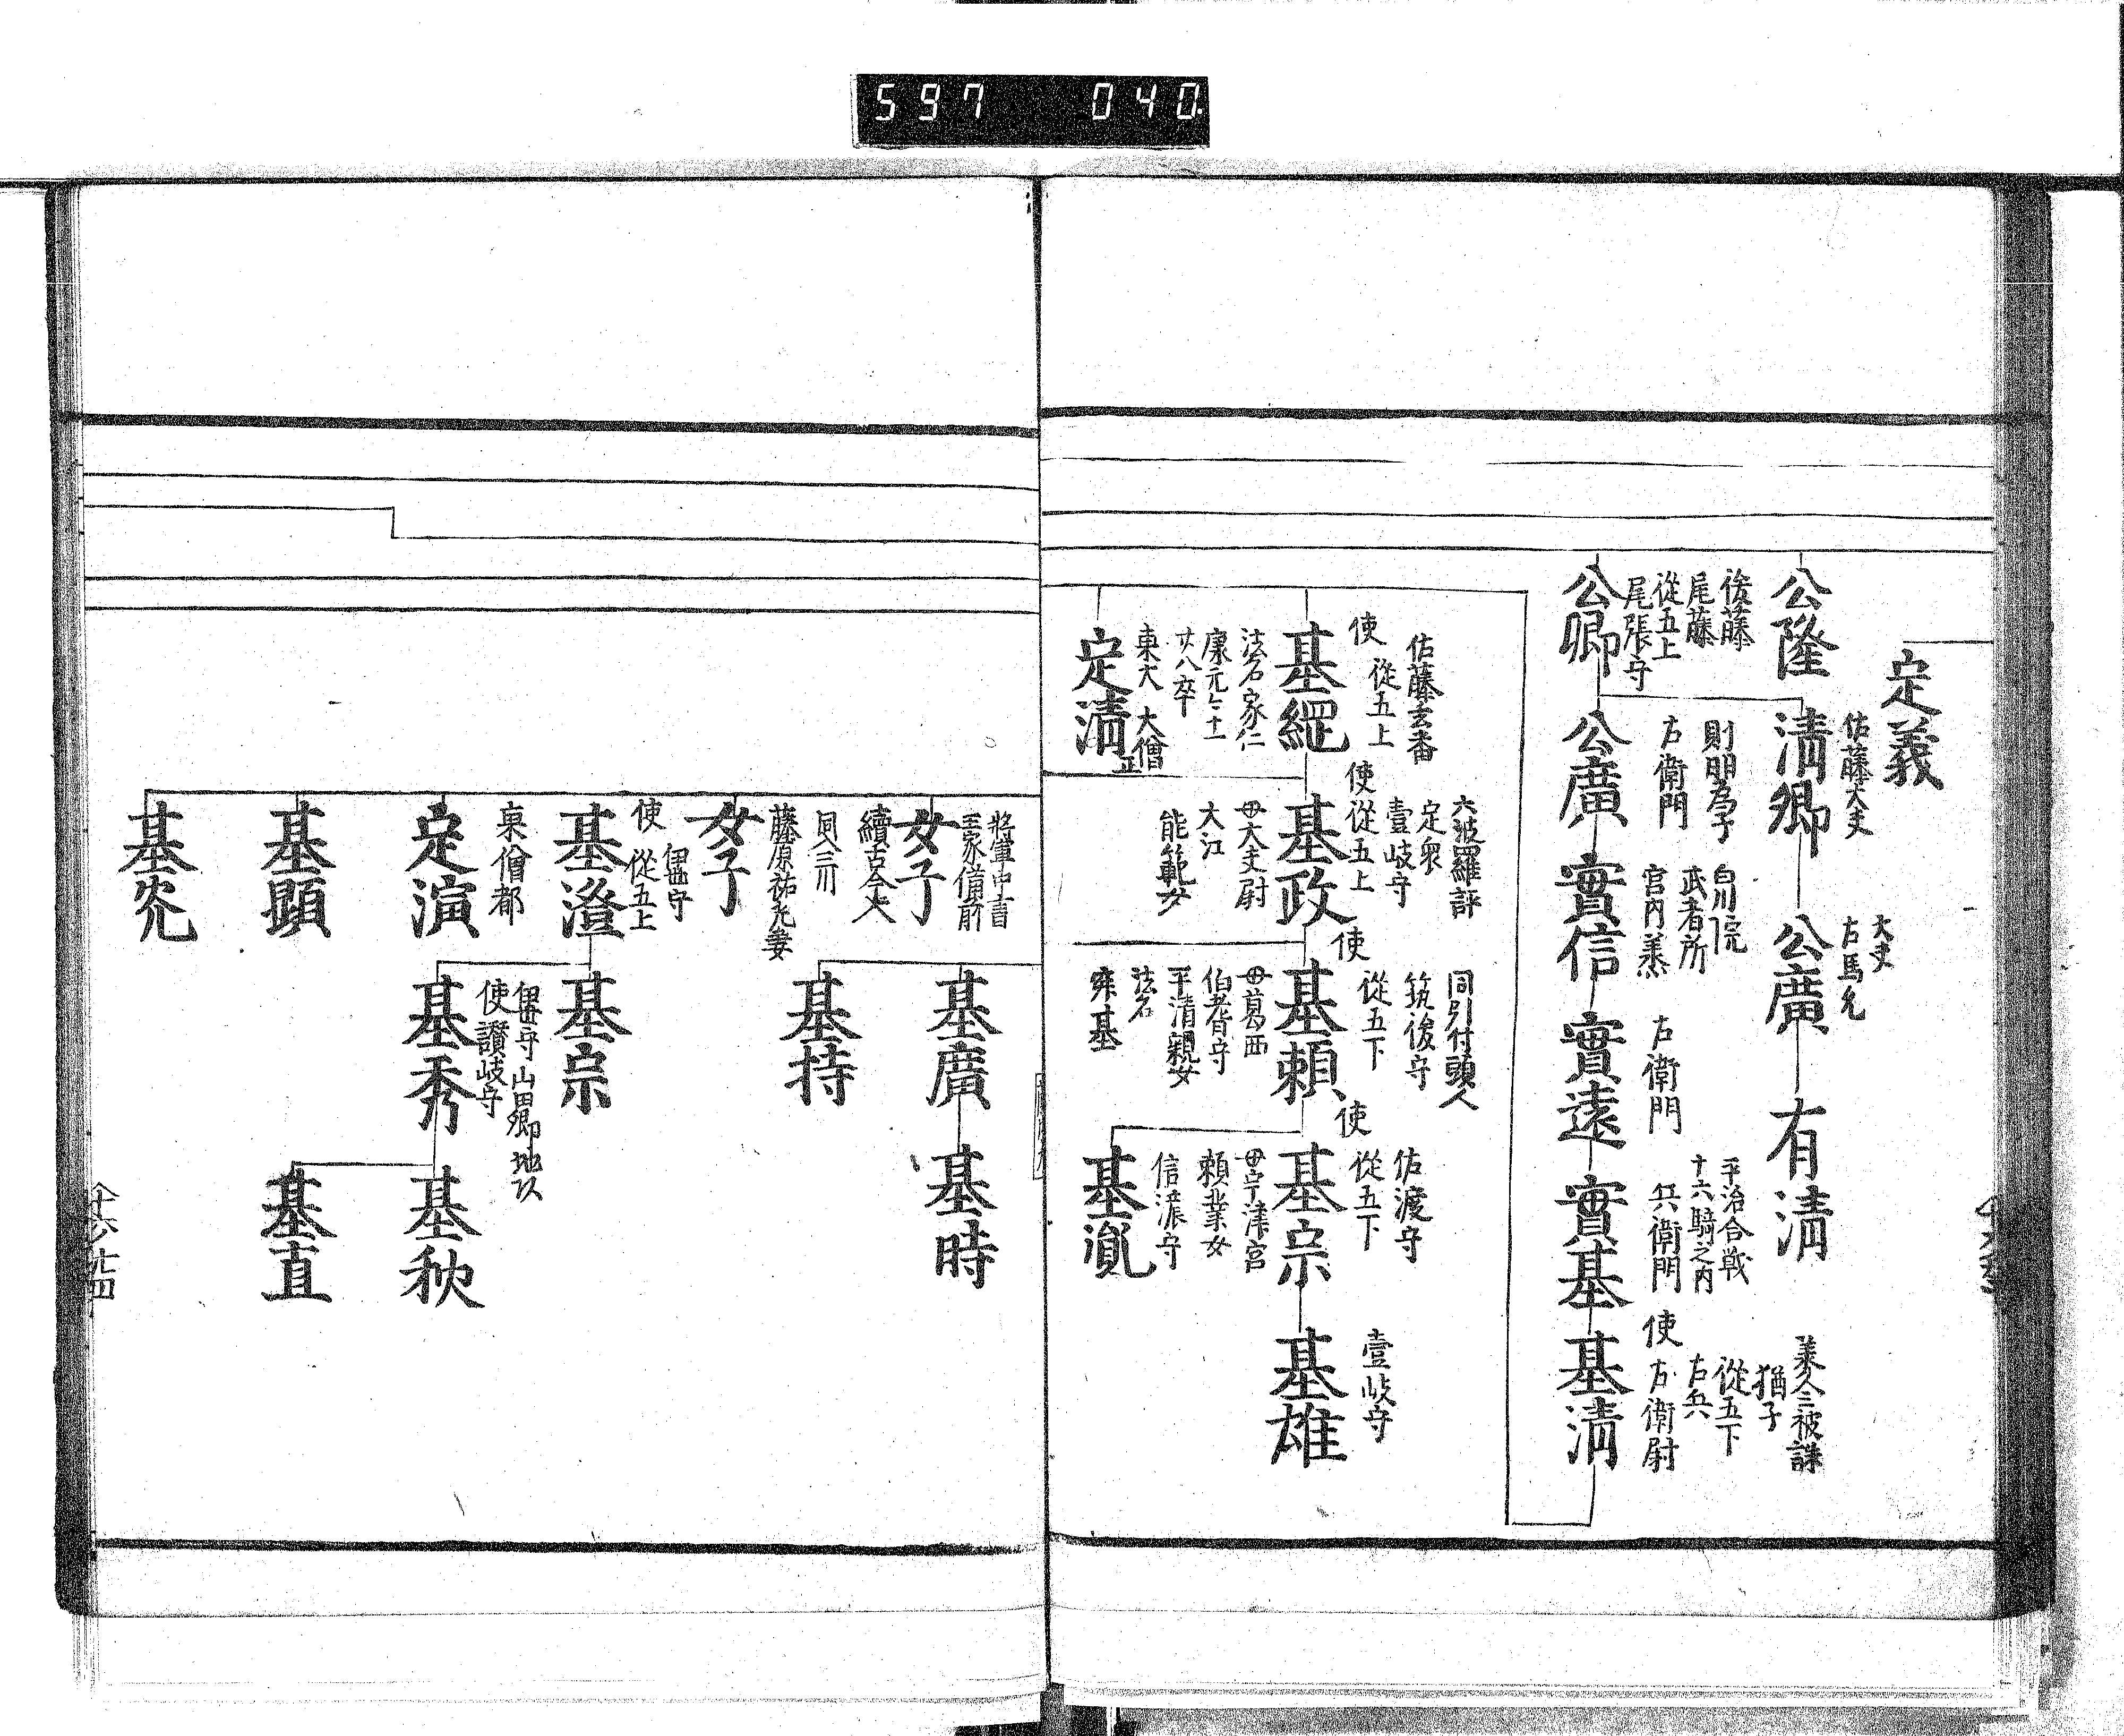 597 040
定義
公隆
清卿
佐藤大夫
公廣
大夫
右馬允
有清
公卿
後藤
尾藤
從五上
尾張守
公廣
則明為子
左衛門
實信
白川院
武者所
實遠
左衛門
實基
平治合戦
十六騎之内
兵衛門
基清
猶子
從五下
右兵
使
左衛尉
基綱
佐藤玄番
從五上
使
法名
康元々十一
廿八卒
定清
東大 大僧正
基政
六波羅評
定衆
壹岐守
從五上
使
母大夫尉
大江
能範女
基頼
同引付頭人
筑後守
從五下
使
母葛西
伯耆守
平清親女
法名
基宗
佐渡守
從五下
使
母宇津宮
頼業女
基胤
信濃守
基雄
壹岐守
女子
基廣
基時
基持
續古今
同人三川
女子
基澄
使
從五上
基宗
定演
僧都
基秀
使 讃岐守
基秋
基直
基顕